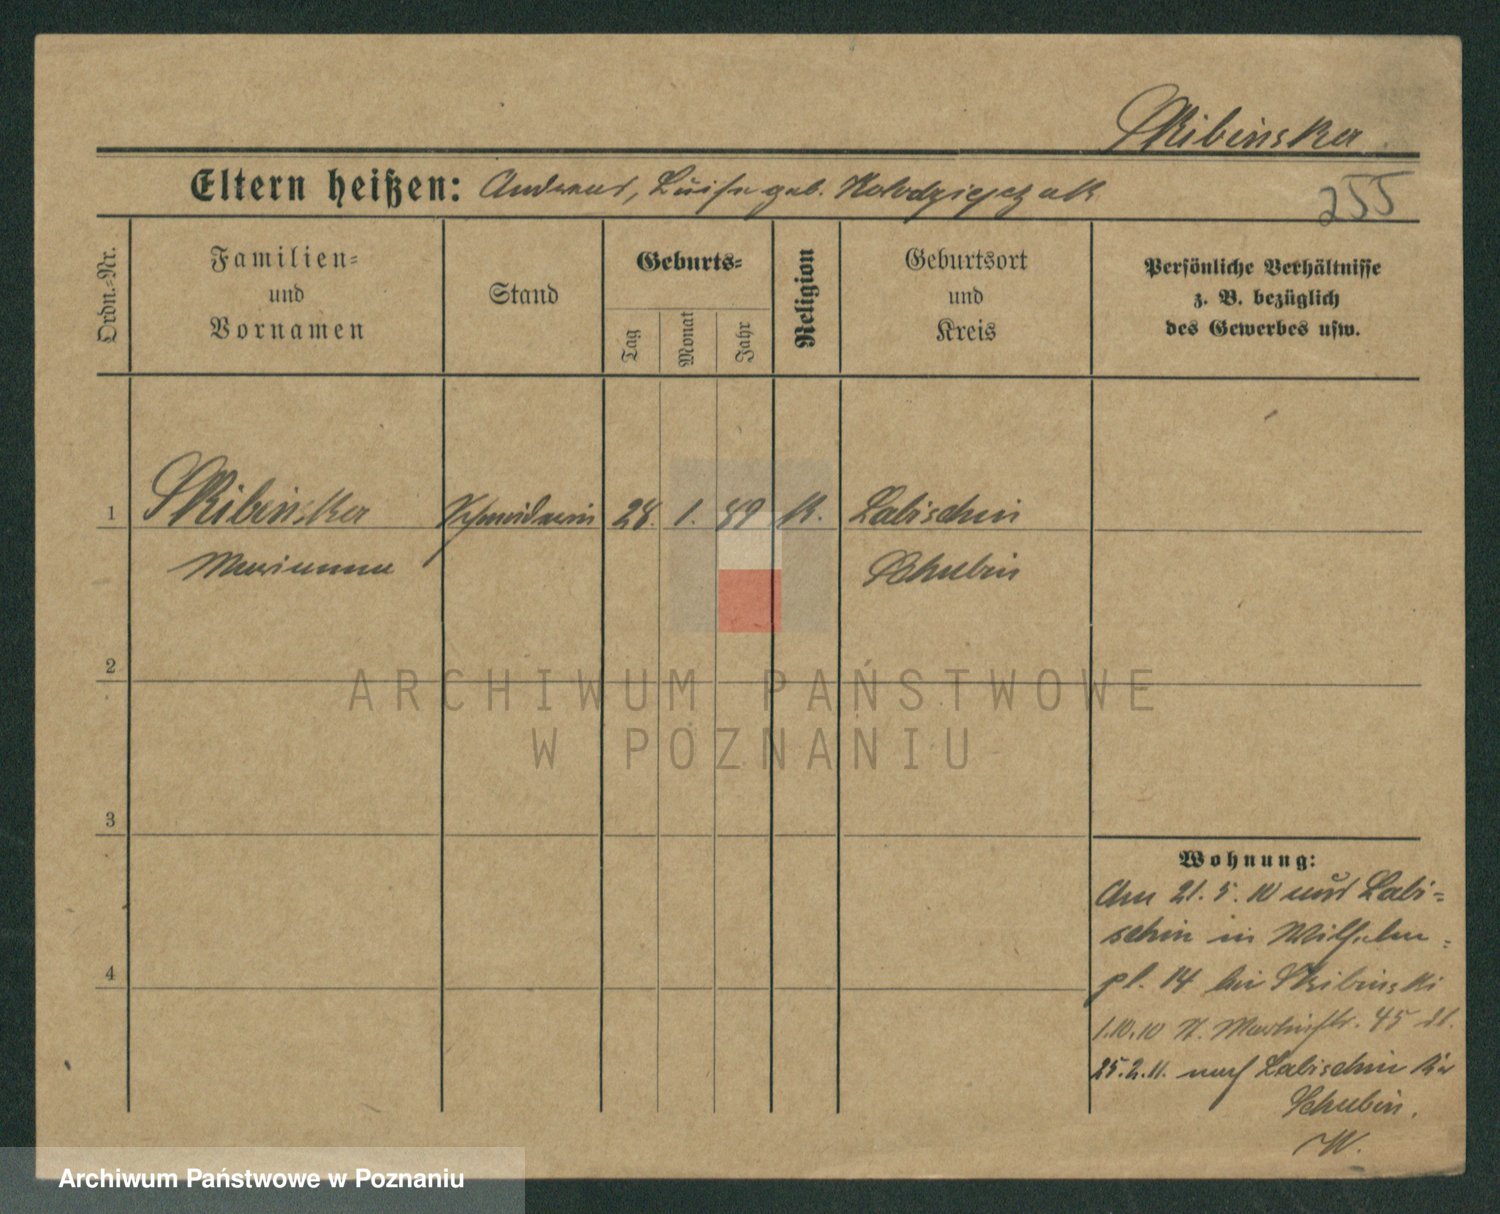 Skibinska
Eltern heißen: Andreas, Luise geb. Kolodziejczak
255
Ordn.-Nr.
Familien-
und
Vornamen
Stand
Geburts-
Tag
Monat
Jahr
Religion
Geburtsort
und
Kreis
Persönliche Verhältnisse
z. B. bezüglich
des Gewerbes usw.
1
Skibinska
Marianna
Schneiderin
28.
1.
89
k.
Labischin
Schubin
2
3
4
Wohnung:
Am 21.5.10 aus Labi-
schin in Wilhelm-
pl. 14 bei Skibinski
1.10.10 St. Martinstr. 45
25.2.11. nach Labischin Kr
Schubin.
W.
ARCHIWUM PAŃSTWOWE
W POZNANIU
Archiwum Państwowe w Poznaniu